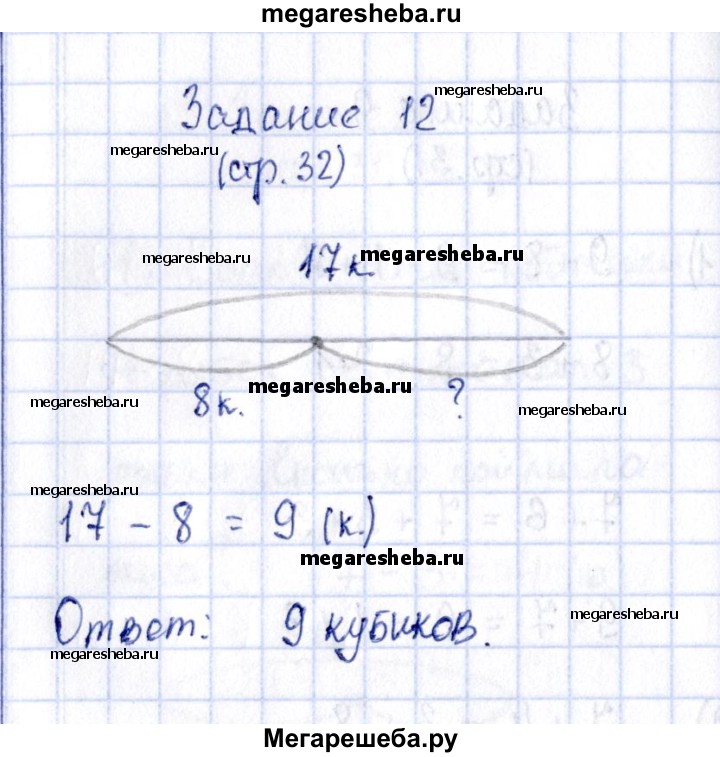 megaresheba.ru
Задание 12
megaresheba.ru
megaresheba.ru
(стр. 32)
17к
megaresheba.ru
megaresheba.ru
8к.
megaresheba.ru
?
megaresheba.ru
megaresheba.ru
megaresheba.ru
17 - 8 = 9 (к.)
megaresheba.ru
Ответ: 9 кубиков.
megaresheba.ru
megaresheba.ru
Мегарешеба.ру